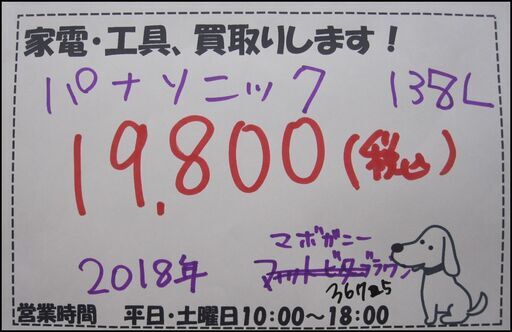 家電・工具、買取りします!
パナソニック 138L
19,800(税込)
マホガニー
2018年 マットビターブラウン
営業時間 平日・土曜日10:00～18:00